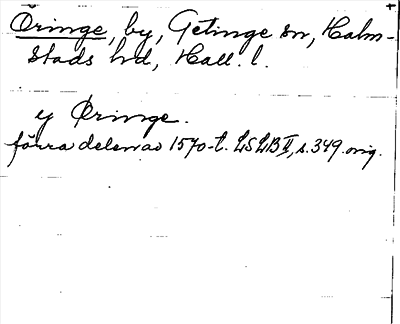 Öringe, by, Getinge sn, Halm-
stads hd, Hall. l.
ij Øringe.
förra delen av 1570-t. LSLB II, s. 349. orig.